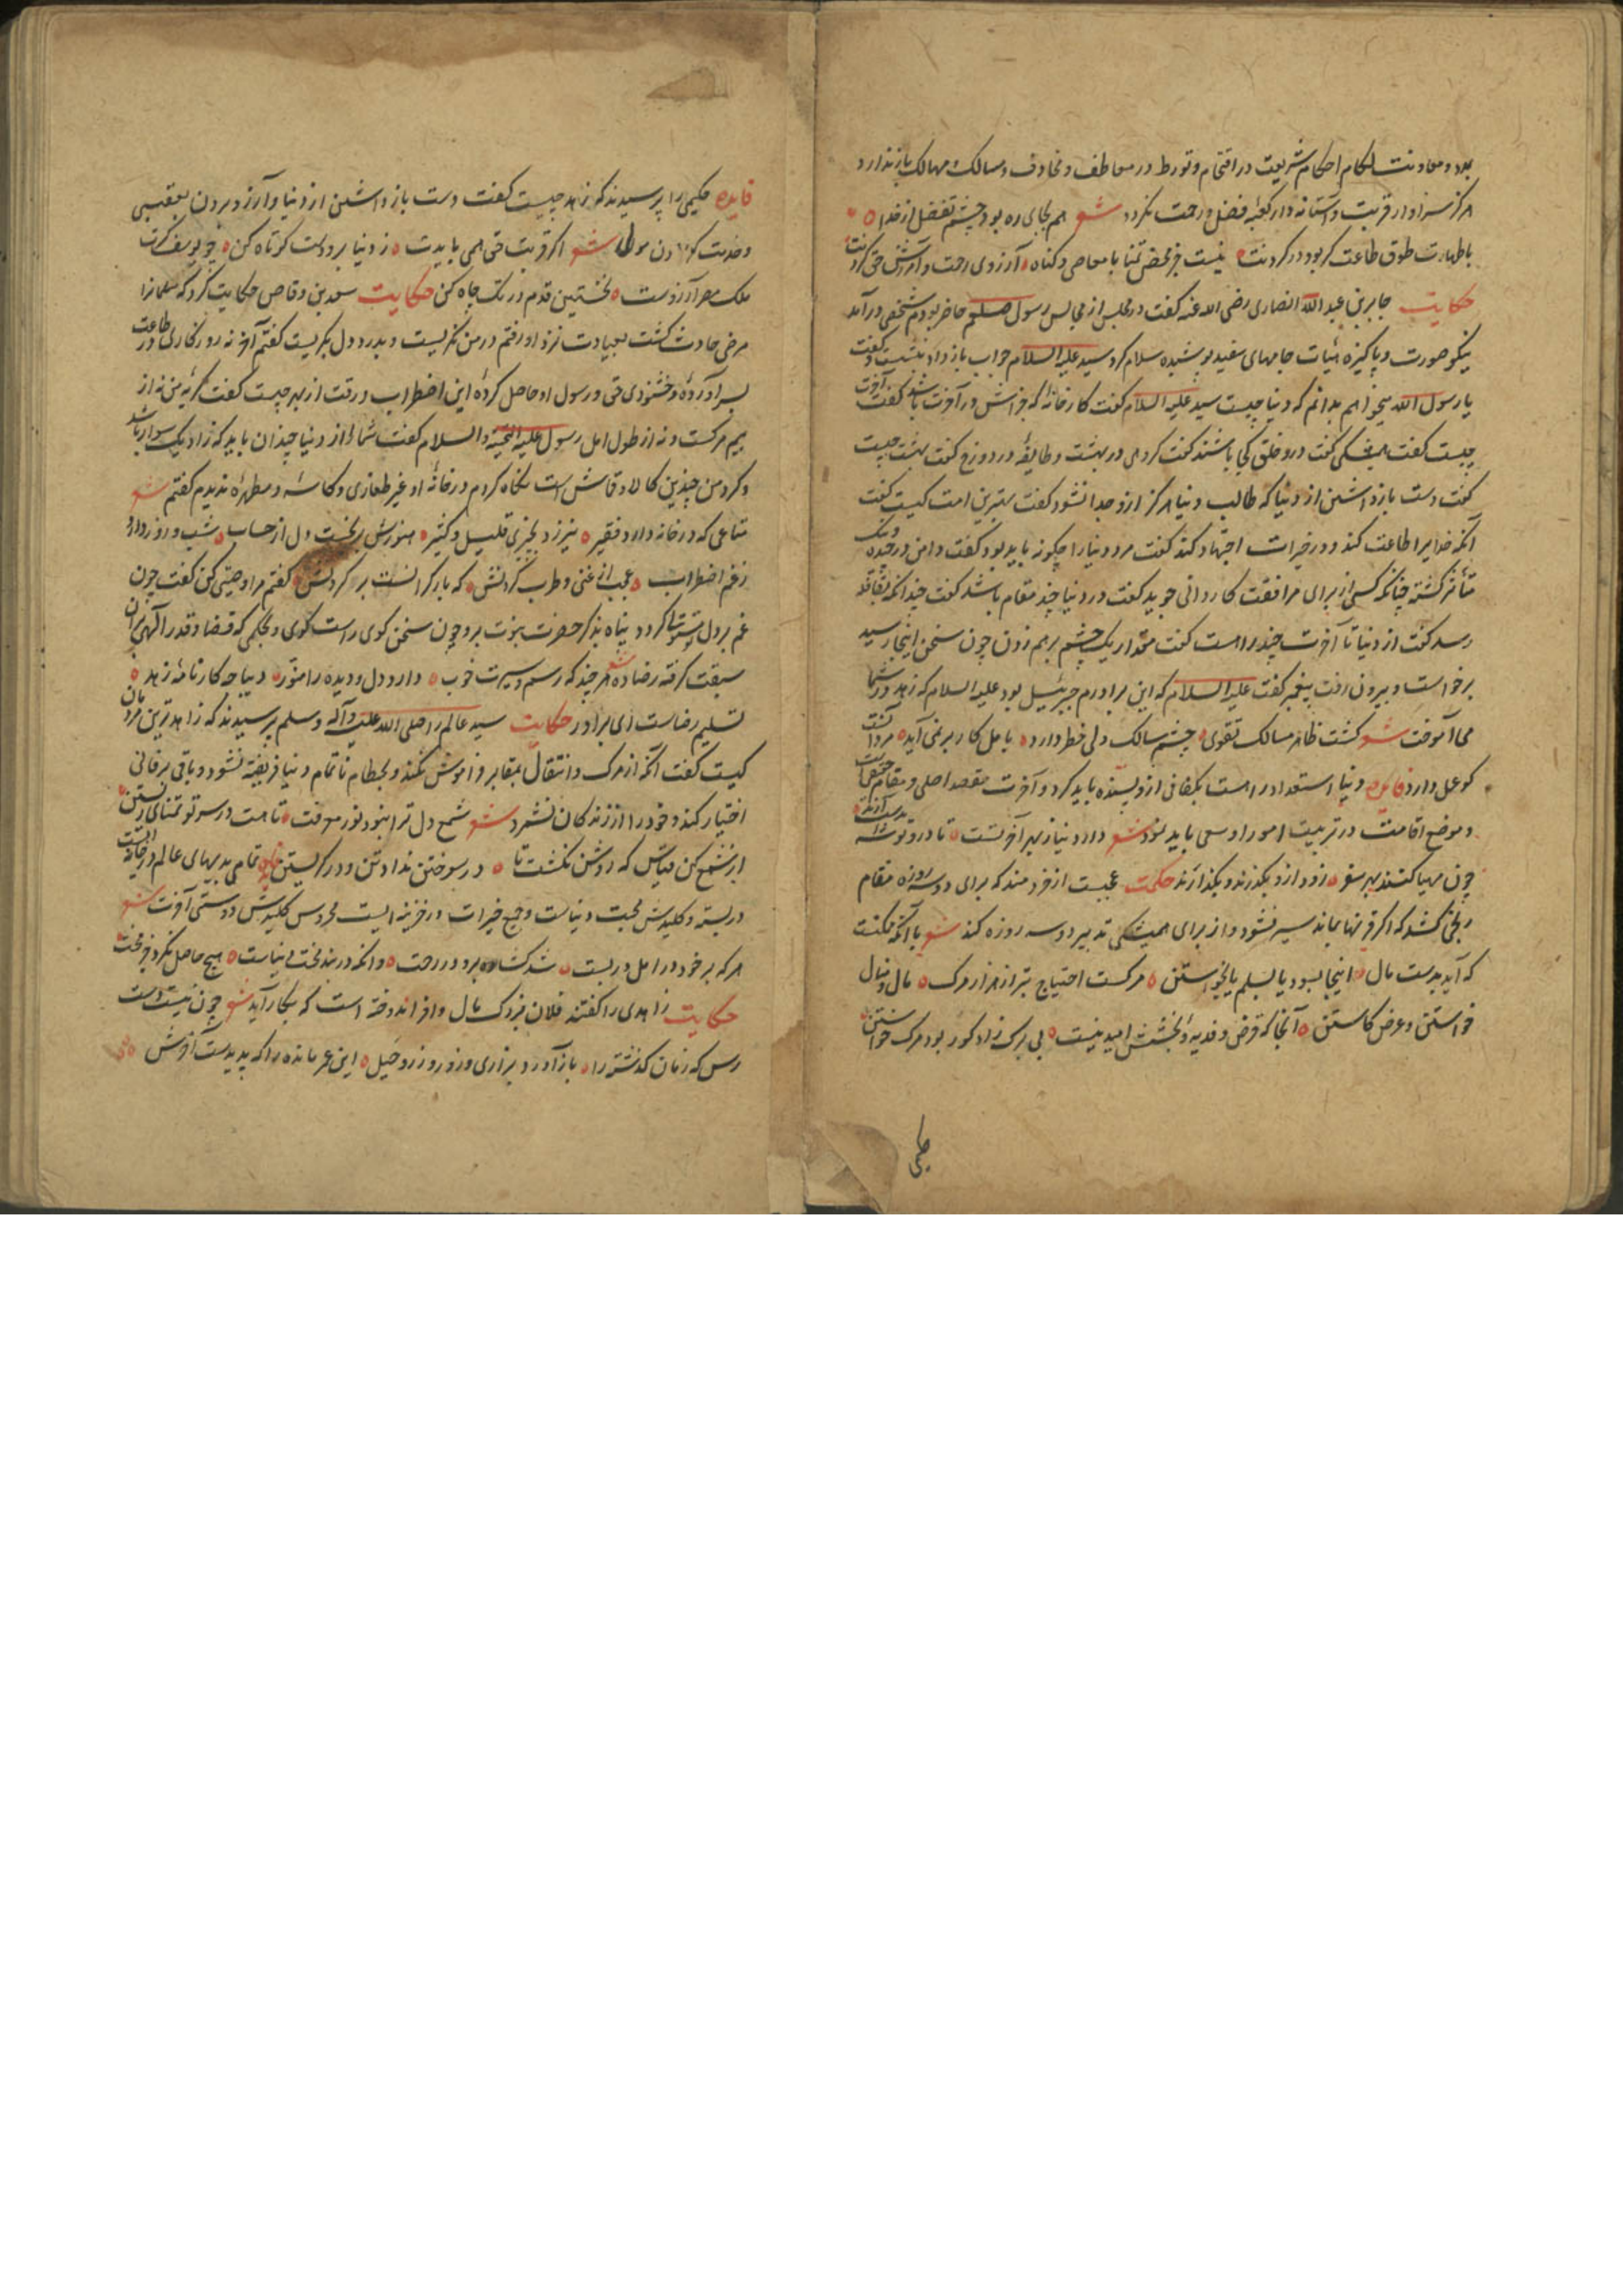 بدو معاونت احکام شریعت در اقتحام و تورط در معاطف و مخاوف و مسالک مهالک باز ندارد
هرکز سزاوار قربت و استانه دار کعبه فضل و رحمت نکردد شعر هم بجای ره بود چشم تفضل از خدا
باطهارت طوق طاعت کر بود در کردنت نیست جز محض تمنا با معاصی و کناه آرزوی رحمت و آمرزش حق کردنت
حکایت جابر بن عبد الله انصاری رضی الله عنه کفت در مجلس از مجالس رسول صلعم حاضر بودم شخصی در آمد
نیکو صورت و پاکیزه هیات جامهای سفید پوشیده سلام کرد سید علیه السلام جواب باز داد بنشست و کفت
یا رسول الله میخواهم بدانم که دنیا چیست سید علیه السلام کفت کارخانه که جزاش در آخرت باشد کفت آخرت
چیست کفت همیشکی کفت درو خلق کجا باشند کفت کروهی در بهشت و طایفه در دوزخ کفت بهشت چیست
کفت دست باز داشتن از دنیا که طالب دنیا هرکز ازو جدا نشود کفت بهترین امت کیست کفت
آنکه خدایرا طاعت کند و در خیرات اجتهاد کند کفت مرد دنیا را چکونه باید بود کفت دامن در چیده
کشته چنانکه کسی از برای مرافقت کاروانی جوید کفت در دنیا چند مقام باشد کفت چندانکه بقافله
رسد کفت از دنیا تا آخرت چند راهست کفت مقدار یک چشم برهم زدن چون سخن اینجا رسید
برخواست و بیرون رفت پیغمبر کفت علیه السلام که این برادرم جبرئیل بود علیه السلام که زهد در شما
می آموخت شعر کشت ظاهر مسالک تقوی چشم سالک ولی خطر دارد با مل کار بر نمی آید مرد آنست
کو عمل دارد فایده دنیا استعداد راهست بکفافی ازو بسنده باید کرد و آخرت مقصد اصلی و مقام حقیقی است
و موضع اقامت در تربیت امور او سعی باید نمود شعر دارد نیاز بهر آخرتست تا درو توشه بدست آرند
چون مهیا کنند بهر سفر زود ازو بکذرند و بکذارند حکمت عجبست از خردمند که برای دو سه روزه مقام
رنجی کشد که اکر قرنها بماند سیر نشود و از برای همیشکی تدبیر دو سه روزه کند شعر با آنکه ممکنست
که آید بدست مال اینجا بسود یا بسلم یا بخواستن مرکست احتیاج بتر از هزار مرک مال و منال
خواستن و عرض کاستن آنجا که قرض و فدیه و بخشش امید نیست بی برک زاد کور بود مرک خواستن
فایده حکیمی را پرسیدند که زهد چیست کفت دست باز داشتن از دنیا و آرزو مردن
شعر اکر قربت حق همی بایدت ز دنیا برو دست کوتاه کن چو یوسف کرت
ملک مصر آرزوست نخستین قدم در تک چاه کن حکایت سعد بن وقاص حکایت کرد که سلمانرا
مرضی حادث کشت بعیادت نزد او رفتم در من نکریست و بدرد دل بکریست کفتم آخر نه روزکاری در طاعت
بسر آورده و خشنودی حق و رسول او حاصل کرده این اضطراب و رقت از بهر چیست کفت کریه من نه از
بیم مرکست و نه از طول امل رسول علیه التحیة و السلام کفت شما را از دنیا چندان باید که زاد یک سوار باشد
و کرد من چندین کالا و قماش است نکاه کردم در خانه او غیر و کاسه و مطهره ندیدم کفتم شعر
متاعی که در خانه دارد فقیر نیرزد بچیزی قلیل و کثیر هنوزش دل از حساب شب و روز دارد
ز غم اضطراب عجب از غنی و طرب کردنش که بار کرانست بر کردنش کفتم مرا وصیتی کن کفت چون
غم بر دل کردد پناه بذکر حضرت عزت بر و چون سخن کوی راست کوی و بحکمی که قضا و قدر الهی بران
سبقت کرفته رضا ده شعر هر چند که رسم و سیرت خوب دارد دل و دیده را منور دیباجه کارنامه زهد
تسلیم رضاست ای برادر حکایت سید عالم را صلی الله علیه و آله وسلم پرسیدند که زاهدترین مردمان
کیست کفت آنکه از مرک و انتقال بمقابر فراموش نکند و بحطام ناتمام دنیا فریفته نشود و باقی بر فانی
اختیار کند و خود را از زندکان نشمرد شعر شمع دل ترا نبود نور معرفت تا هست در سر تو تمنای زیستن
از شمع کن قیاس که روشن نکشت تا در سوختن نداد تن و در کریستن فایده تمامی بدیهای عالم در خانه ایست
در بسته و کلیدش محبت دنیاست و جمیع خیرات در خزینه ایست محروس کلیدش دوستی آخرت شعر
هر که بر خود در امل در بست شد کشاده برو در رحمت و آنکه در بند محنت دنیاست هیچ حاصل نکرد جز محنت
حکایت زاهدی را کفتند فلان بزرک مال وافر اندوخته است که بکار آید شعر چون نیست دست
رس که زمان کذشته را باز آورد بزاری و زور و زر و حیل این عمر مانده را که پدیدست آخرش